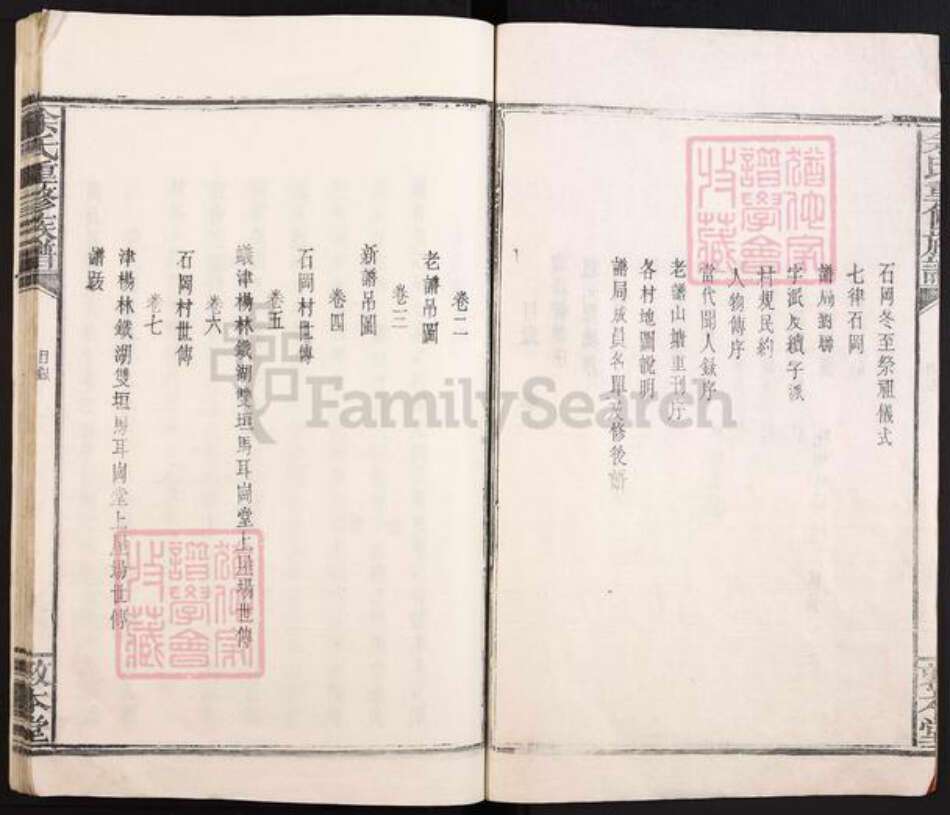 石岡冬至祭祖儀式
七律石岡
譜局對聯
字派及續字派
村規民約
人物傳序
當代聞人錄序
老譜山塘重刊序
各村地圖說明
譜局成員名單及修後語
卷二
老譜吊圖
卷三
新譜吊圖
卷四
石岡村世傳
卷五
津楊林鐵湖雙垣馬耳崗堂上屋場世傳
卷六
石岡村世傳
卷七
津楊林鐵湖雙垣馬耳崗堂上屋場世傳
譜跋
余氏重修族譜
目錄
敦本堂
譜學會
收藏
FamilySearch